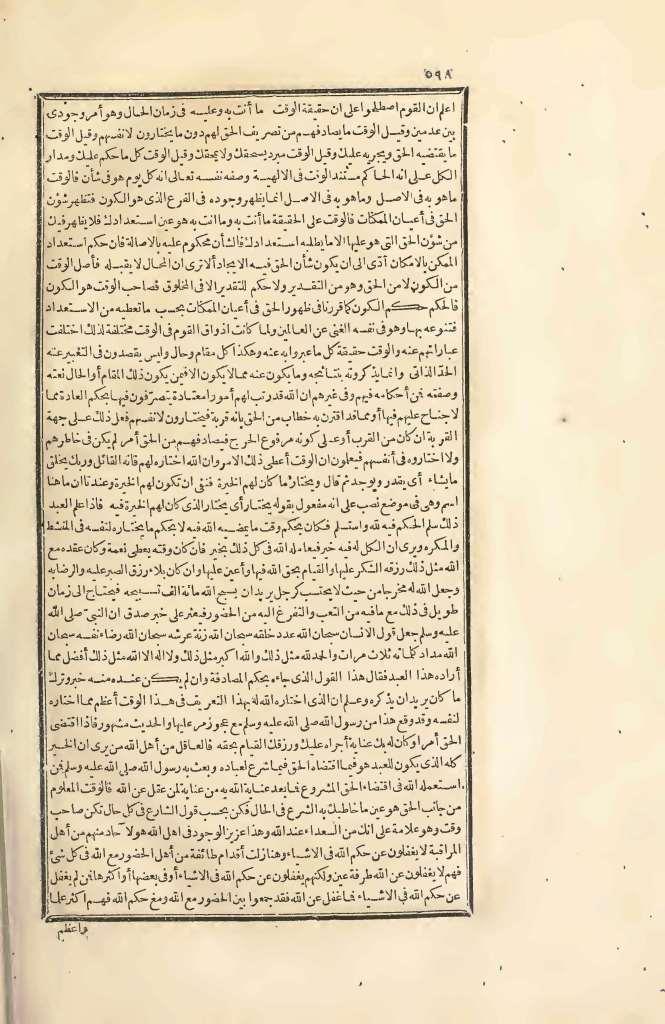 ٥٩٨
اعلم ان القوم اصطلحوا على ان حقيقة الوقت ما أنت به وعليه فى زمان الحال وهو أمر وجودى
بين عدمين وقيل الوقت ما يصادفهم من تصريف الحق لهم دون ما يختارون لانفسهم وقيل الوقت
ما يقتضيه الحق ويجريه عليك وقيل الوقت مبرد يسحقك ولا يمحقك وقيل الوقت كل ما حكم عليك ومدار
الكل على انه الحاكم مستند الوقت فى الالهية وصفه نفسه تعالى انه كل يوم هو فى شأن فالوقت
ما هو به فى الاصل وما هو به فى الاصل انما يظهر وجوده فى الفرع الذى هو الكون فتظهر شؤن
الحق فى أعيان الممكنات فالوقت على الحقيقة ما أنت به وما انت به هو عين استعدادك فلا يظهر فيك
من شؤن الحق التى هو عليها الا ما يطلبه استعدادك فالشأن محكوم عليه بالاصالة فان حكم استعداد
الممكن بالامكان أدّى الى ان يكون شأن الحق فيه الايجاد ألا ترى ان المحال لا يقبله فأصل الوقت
من الكون لا من الحق وهو من التقدير ولا حكم للتقدير الا فى المخلوق فصاحب الوقت هو الكون
فالحكم حكم الكون كما قررنا فى ظهور الحق فى أعيان الممكنات بحسب ما تعطيه من الاستعداد
فتنوعه بها وهو فى نفسه الغنى عن العالمين ولما كانت اذواق القوم فى الوقت مختلفة لذلك اختلفت
عباراتهم عنه والوقت حقيقة كل ما عبروا به عنه وهكذا كل مقام وحال وليس يقصدون فى التعبير عنه
الحدّ الذاتى وانما يذكرونه بنتائجه وما يكون عنه مما لا يكون الا فيمن يكون ذلك المقام أو الحال نعته
وصفته فمن أحكامه فيهم وفى غيرهم ان الله قد رتب لهم أمورا معتادة يتصرّفون فيها بحكم العادة مما
لا جناح عليهم فيها أو مما قد اقترن به خطاب من الحق بانه قربة فيختارون لانفسهم فعل ذلك على جهة
القربة ان كان من القرب أو على كونه مرفوع الحرج فيصادفهم من الحق أمر لم يكن فى خاطرهم
ولا اختاروه فى أنفسهم فيعلمون ان الوقت أعطى ذلك الامر وان الله اختاره لهم فانه القائل وربك يخلق
ما يشاء أى يقدر ويوجد ثم قال ويختار ما كان لهم الخيرة فنفى ان تكون لهم الخيرة وعندنا ان ما هنا
اسم وهى فى موضع نصب على انه مفعول بقوله يختار أى يختار الذى كان لهم الخيرة فيه فاذا علم العبد
ذلك سلم الحكم فيه لله واستسلم فكان بحكم وقت ما يمضيه الله فيه لا بحكم ما يختاره لنفسه فى المنشط
والمكره ويرى ان الكل له فيه خير فيعامله الله فى كل ذلك بخير فان كان وقته يعطى نعمة وكان عقده مع
الله مثل ذلك رزقه الشكر عليها والقيام بحق الله فيها وأعين عليها وان كان بلاء رزق الصبر عليه والرضا به
وجعل الله له مخرجا من حيث لا يحتسب كرجل يريد ان يسبح الله مائة الف تسبيحه فيحتاج الى زمان
طويل فى ذلك مع ما فيه من التعب والتفرغ اليه من الحضور فيعثر على خبر صدق ان النبىّ صلى الله
عليه وسلم جعل قول الانسان سبحان الله عدد خلقه سبحان الله زنة عرشه سبحان الله رضاء نفسه سبحان
الله مداد كلماته ثلاث مرات والحمد لله مثل ذلك والله اكبر مثل ذلك ولا اله الا الله مثل ذلك أفضل مما
أراده هذا العبد فقال هذا القول الذى جاءه بحكم المصادفة وان لم يكن عنده منه خبر وترك
ما كان يريد ان يذكره وعلم ان الذى اختاره الله له بهذا التعريف فى هذا الوقت أعظم مما اختاره
لنفسه وقد وقع هذا من رسول الله صلى الله عليه وسلم مع عجوز مر عليها والحديث مشهور فاذا اقتضى
الحق أمرا وكان له بك عناية أجراه عليك ورزقك القيام بحقه فالعاقل من أهل الله من يرى ان الخير
كله الذى يكون للعبد هو فيما اقتضاه الحق فيما شرع لعباده وبعث به رسول الله صلى الله عليه وسلم فمن
استعمله الله فى اقتضاء الحق المشروع فما بعد عناية الله به من عناية لمن عقل عن الله فالوقت المعلوم
من جانب الحق هو عين ما خاطبك به الشرع فى الحال فكن بحسب قول الشارع فى كل حال تكن صاحب
وقت وهو علامة على انك من السعداء عند الله وهذا عزيز الوجود فى اهل الله هو لآحاد منهم من أهل
المراقبة لا يغفلون عن حكم الله فى الاشياء وهنا زلت أقدام طائفة من أهل الحضور مع الله فى كل شئ
فهم لا يغفلون عن الله طرفة عين ولكنهم يغفلون عن حكم الله فى الاشياء أو فى بعضها أو اكثرها فمن لم يغفل
عن حكم الله فى الاشياء فما غفل عن الله فقد جمعوا بين الحضور مع الله ومع حكم الله فهم اكثر علما
واعظم